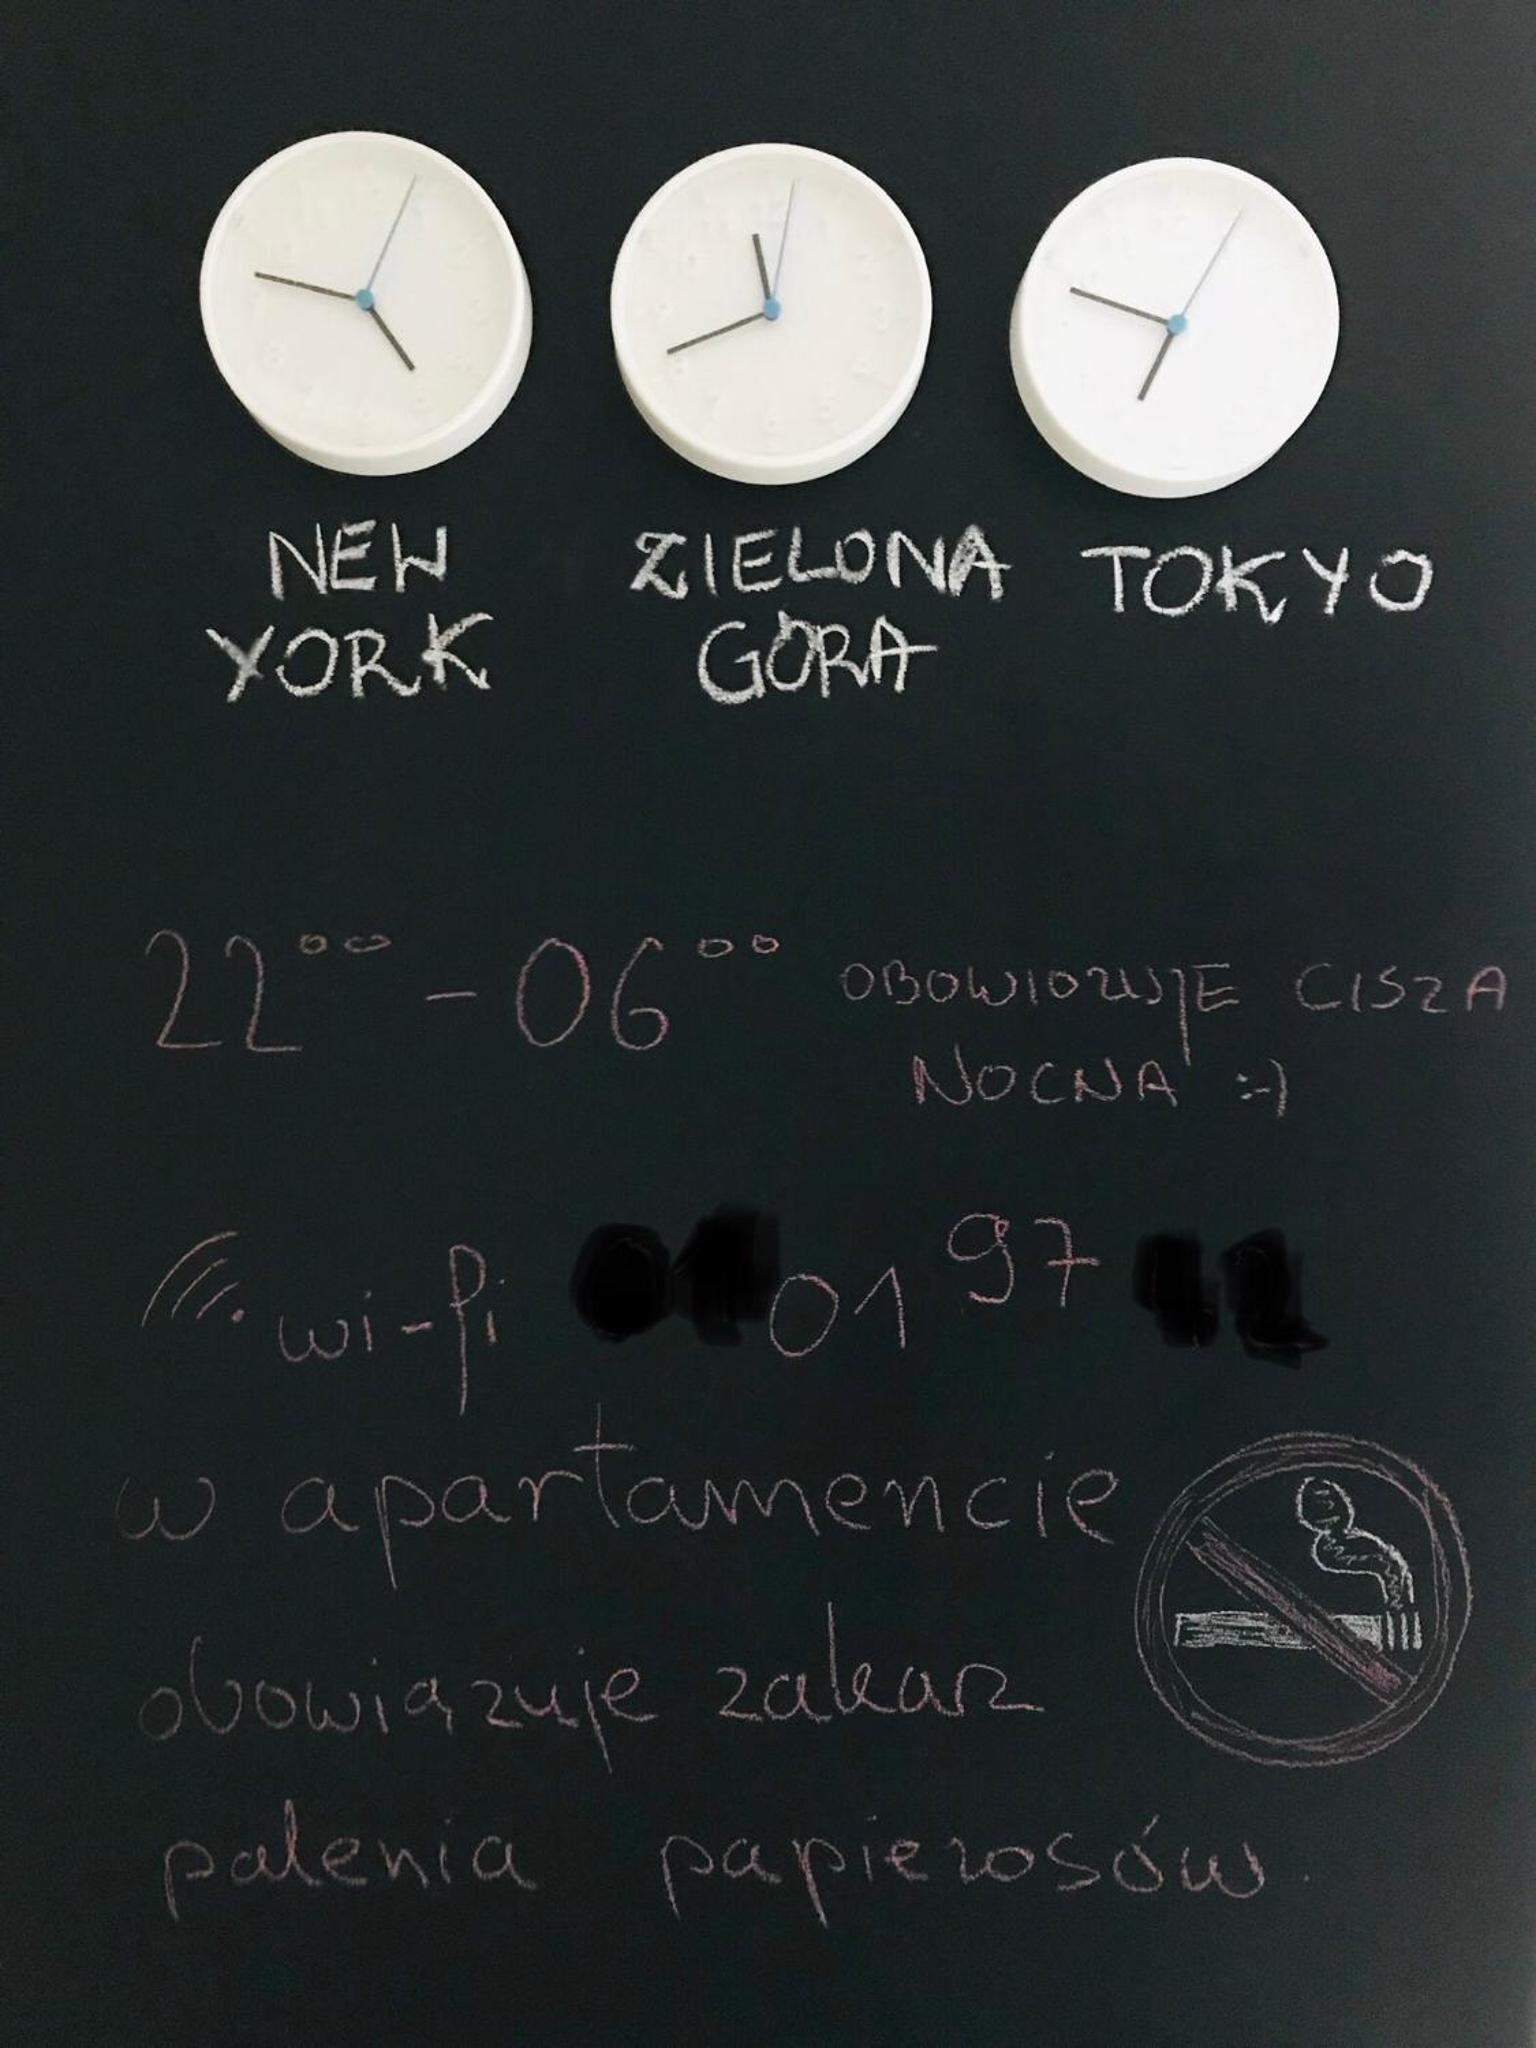 NEW
YORK
ZIELONA
GÓRA
TOKYO
22⁰⁰ - 06⁰⁰ OBOWIĄZUJE CISZA
NOCNA :-)
wi-fi 01 97
w apartamencie
obowiązuje zakaz
palenia papierosów.